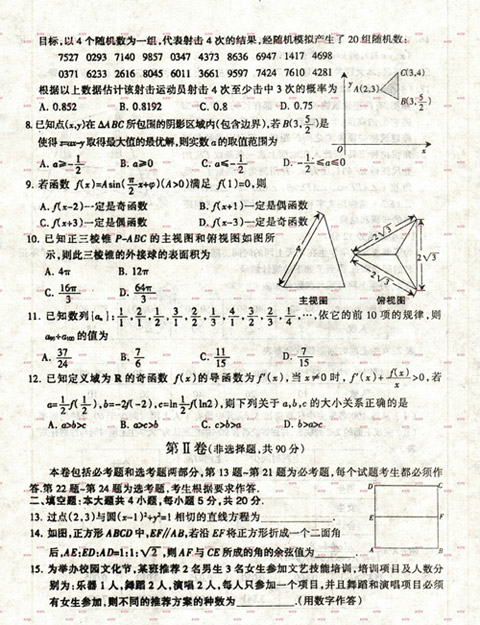 目标,以4个随机数为一组,代表射击4次的结果,经随机模拟产生了20组随机数:
7527 0293 7140 9857 0347 4373 8636 6947 1417 4698
0371 6233 2616 8045 6011 3661 9597 7424 7610 4281
根据以上数据估计该射击运动员射击4次至少击中3次的概率为
A. 0.852 B. 0.8192 C. 0.8 D. 0.75
y A(2,3) C(3,4) B(3,5/2) x
8. 已知点(x,y)在ΔABC所包围的阴影区域内(包含边界),若B(3,5/2)是
使得z=ax-y取得最大值的最优解,则实数a的取值范围为
A. a≥-1/2 B. a≥0 C. a≤-1/2 D. -1/2≤a≤0
9. 若函数 f(x)=Asin(π/2 x+φ)(A>0)满足 f(1)=0,则
A. f(x-2)一定是奇函数 B. f(x+1)一定是偶函数
C. f(x+3)一定是偶函数 D. f(x-3)一定是奇函数
10. 已知正三棱锥P-ABC的主视图和俯视图如图所
示,则此三棱锥的外接球的表面积为
A. 4π B. 12π
C. 16π/3 D. 64π/3
4 2√3 2√3 2√3
主视图 俯视图
11. 已知数列{aₙ}:1/1,2/1,1/2,3/1,2/2,1/3,4/1,3/2,2/3,1/4,…,依它的前10项的规律,则
a₉₉+a₁₀₀的值为
A. 37/24 B. 7/6 C. 11/15 D. 7/15
12. 已知定义域为R的奇函数 f(x)的导函数为f′(x),当x≠0时,f′(x)+f(x)/x>0,若
a=1/2 f(1/2),b=-2f(-2),c=ln1/2 f(ln2),则下列关于a,b,c的大小关系正确的是
A. a>b>c B. a>c>b C. c>b>a D. b>a>c
第Ⅱ卷(非选择题,共90分)
本卷包括必考题和选考题两部分,第13题~第21题为必考题,每个试题考生都必须作
答.第22题~第24题为选考题,考生根据要求作答.
二、填空题:本大题共4小题,每小题5分,共20分.
13. 过点(2,3)与圆(x-1)²+y²=1相切的直线方程为
14. 如图,正方形ABCD中,EF//AB,若沿EF将正方形折成一个二面角
后,AE:ED:AD=1:1:√2,则AF与CE所成的角的余弦值为
D C E F A B
15. 为举办校园文化节,某班推荐2名男生3名女生参加文艺技能培训,培训项目及人数分
别为:乐器1人,舞蹈2人,演唱2人,每人只参加一个项目,并且舞蹈和演唱项目必须
有女生参加,则不同的推荐方案的种数为 .(用数字作答)